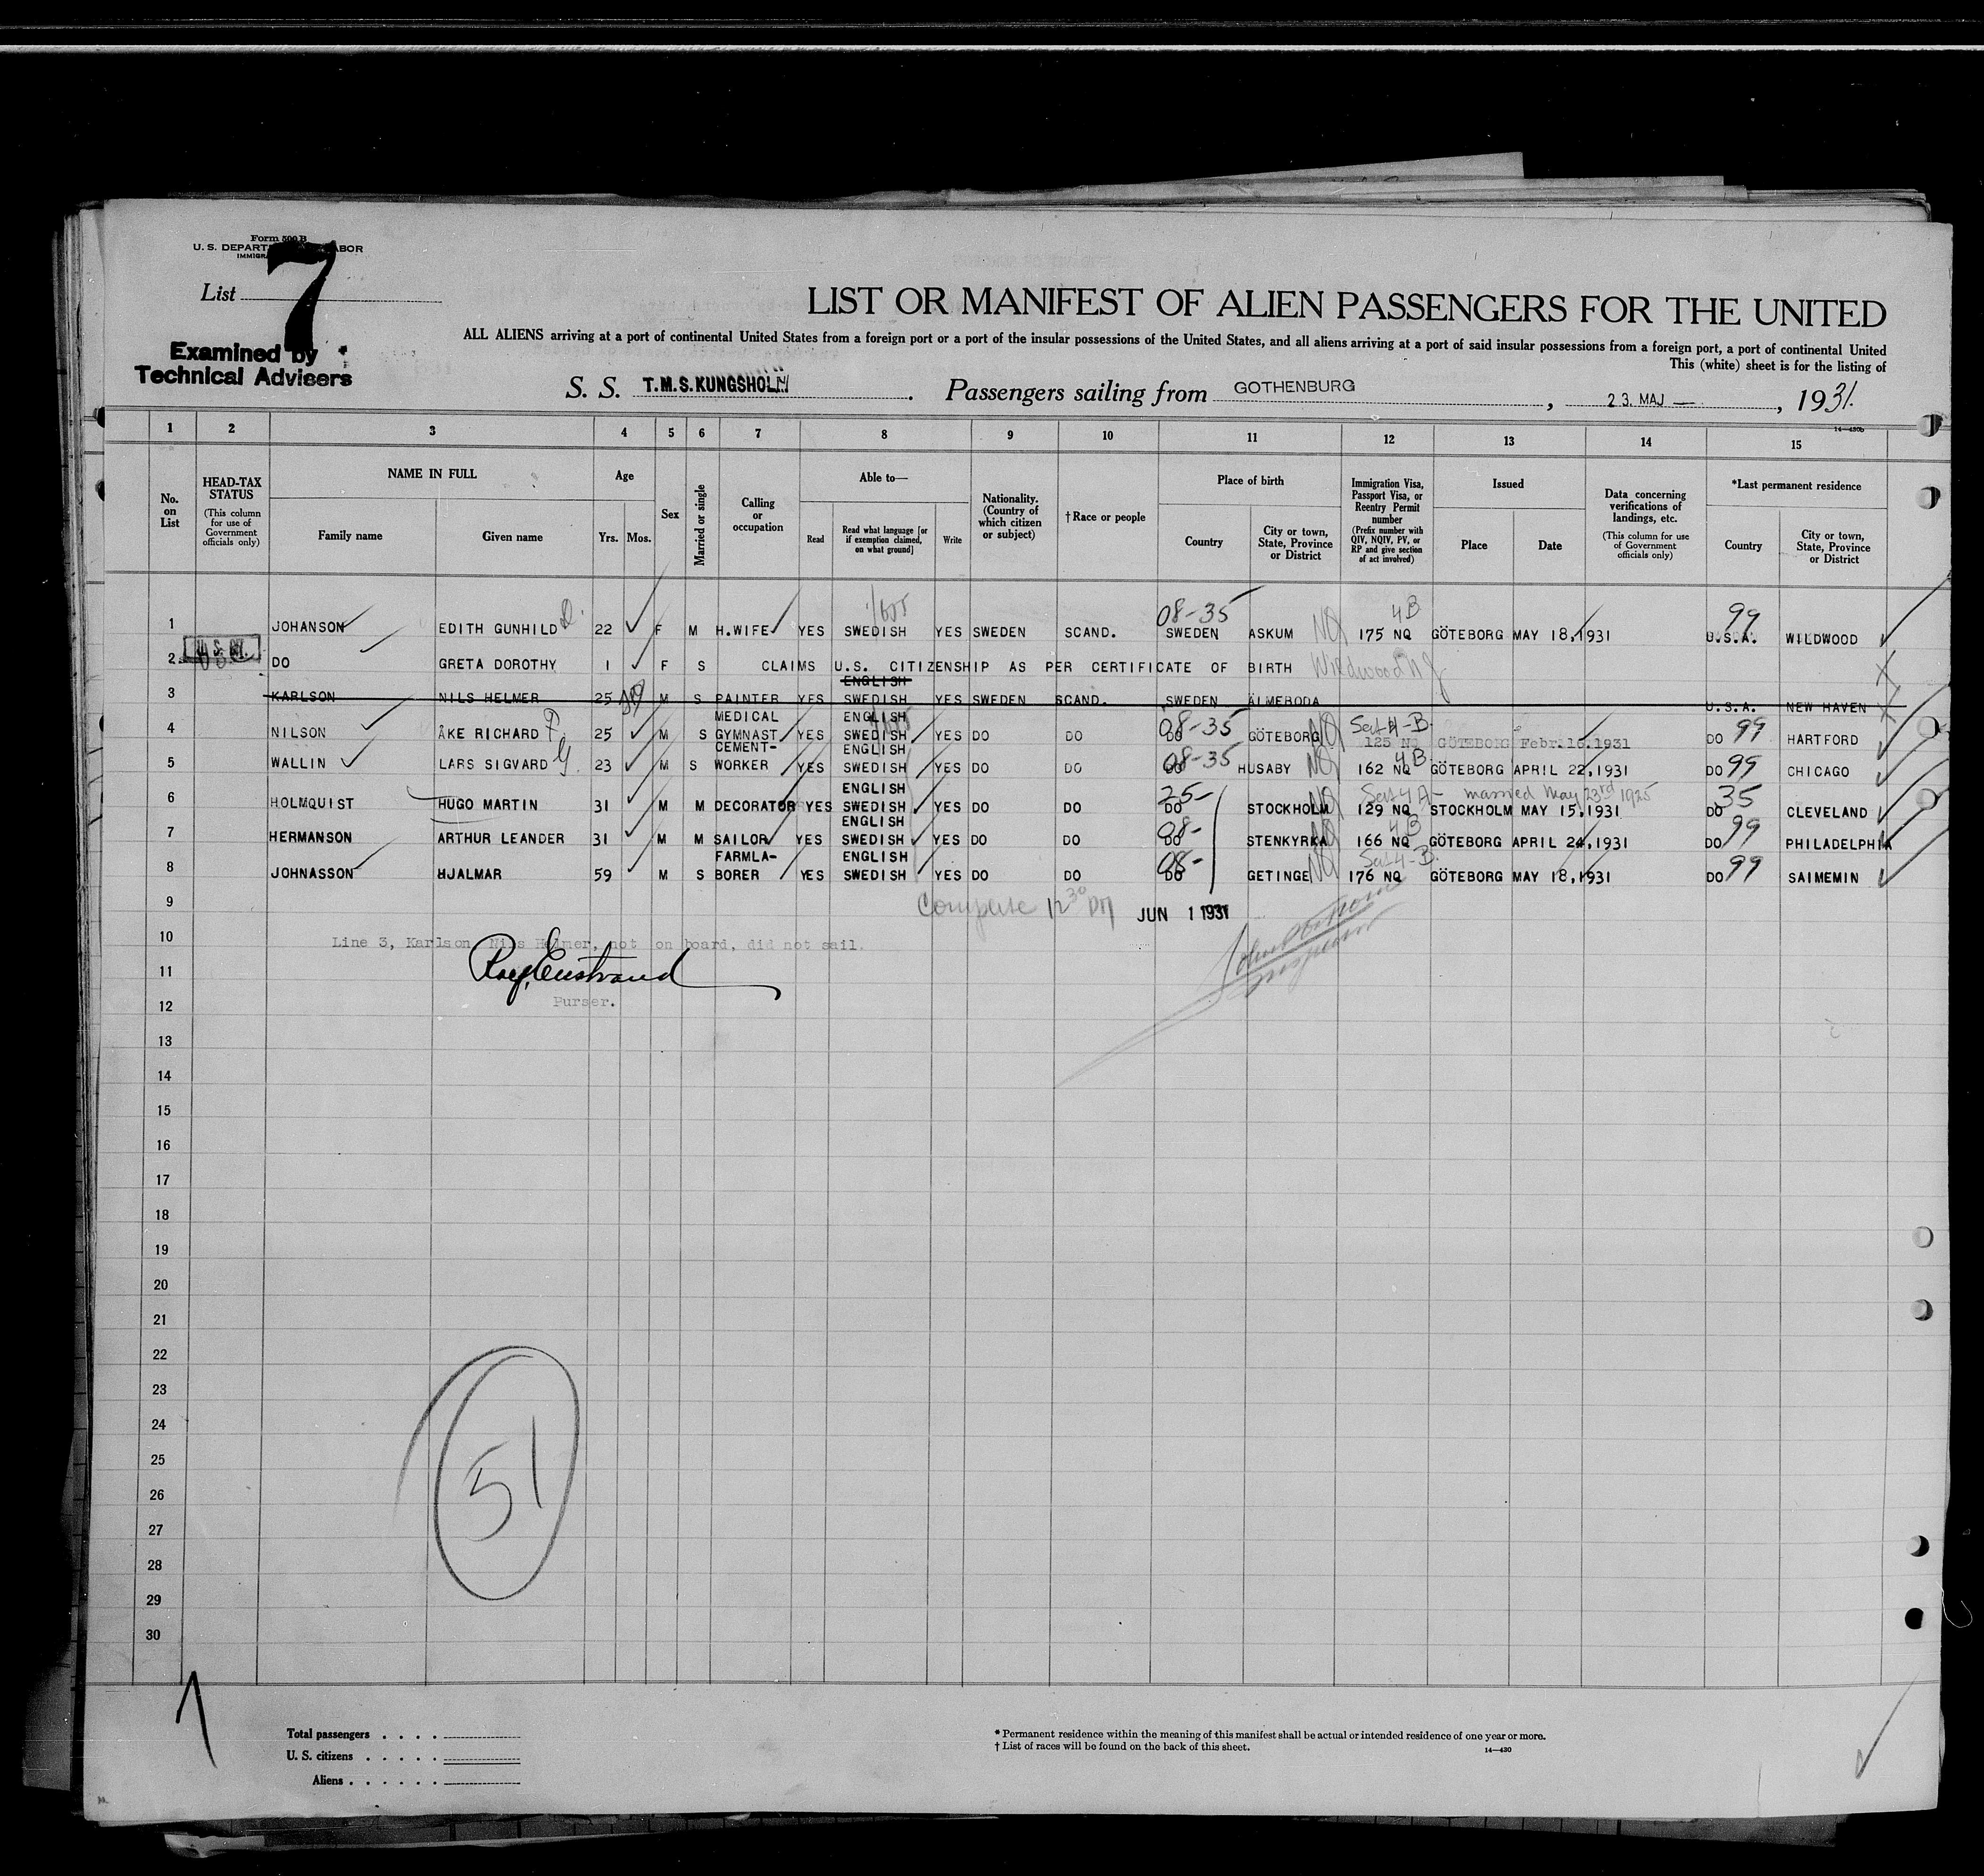 Form 500 B
U. S. DEPART ABOR
IMMIGRA
List 7
Examined by
Technical Advisers
LIST OR MANIFEST OF ALIEN PASSENGERS FOR THE UNITED
ALL ALIENS arriving at a port of continental United States from a foreign port or a port of the insular possessions of the United States, and all aliens arriving at a port of said insular possessions from a foreign port, a port of continental United
This (white) sheet is for the listing of
S. S. T.M.S. KUNGSHOLM. Passengers sailing from GOTHENBURG, 23. MAJ —, 1931.
14—430b
1 2 3 4 5 6 7 8 9 10 11 12 13 14 15
No. on List
HEAD-TAX STATUS
(This column for use of Government officials only)
NAME IN FULL
Family name
Given name
Age
Yrs. Mos.
Sex
Married or single
Calling or occupation
Able to—
Read
Read what language [or if exemption claimed, on what ground]
Write
Nationality. (Country of which citizen or subject)
†Race or people
Place of birth
Country
City or town, State, Province or District
Immigration Visa, Passport Visa, or Reentry Permit number
(Prefix number with QIV, NQIV, PV, or RP and give section of act involved)
Issued
Place
Date
Data concerning verifications of landings, etc.
(This column for use of Government officials only)
*Last permanent residence
Country
City or town, State, Province or District
08-35 4B 99
1 JOHANSON EDITH GUNHILD D. 22 F M H.WIFE YES SWEDISH YES SWEDEN SCAND. SWEDEN ASKUM NQ 175 NQ GÖTEBORG MAY 18,1931 U.S.A. WILDWOOD
2 DO GRETA DOROTHY 1 F S CLAIMS U.S. CITIZENSHIP AS PER CERTIFICATE OF BIRTH Wildwood N J
ENGLISH
3 KARLSON NILS HELMER 25 M S PAINTER YES SWEDISH YES SWEDEN SCAND. SWEDEN ÄLMEBODA U.S.A. NEW HAVEN
MEDICAL ENGLISH 08-35 Sec 4-B
4 NILSON ÅKE RICHARD F. 25 M S GYMNAST YES SWEDISH YES DO DO DO GÖTEBORG NQ 125 NQ GÖTEBORG Febr.16.1931 DO 99 HARTFORD
CEMENT- ENGLISH 08-35 4B
5 WALLIN LARS SIGVARD G. 23 M S WORKER YES SWEDISH YES DO DO DO HUSABY NQ 162 NQ GÖTEBORG APRIL 22,1931 DO 99 CHICAGO
ENGLISH 25- Sec 4A- married May 23rd 1925 35
6 HOLMQUIST HUGO MARTIN 31 M M DECORATOR YES SWEDISH YES DO DO DO STOCKHOLM NQ 129 NQ STOCKHOLM MAY 15,1931 DO CLEVELAND
ENGLISH 08- 4B
7 HERMANSON ARTHUR LEANDER 31 M M SAILOR YES SWEDISH YES DO DO DO STENKYRKA NQ 166 NQ GÖTEBORG APRIL 24,1931 DO 99 PHILADELPHIA
FARMLA- ENGLISH 08- Sec 4-B.
8 JOHNASSON HJALMAR 59 M S BORER YES SWEDISH YES DO DO DO GETINGE NQ 176 NQ GÖTEBORG MAY 18,1931 DO 99 SAIMEMIN
9 12 30 PM JUN 1 1931
10 Line 3, Karlson, Nils Helmer, not on board, did not sail.
11
12 Purser.
13
14
15
16
17
18
19
20
21
22
23
24
25
26
27
28
29
30
51
Total passengers . . . .
U. S. citizens . . . . .
Aliens . . . . . .
* Permanent residence within the meaning of this manifest shall be actual or intended residence of one year or more.
† List of races will be found on the back of this sheet. 14—430